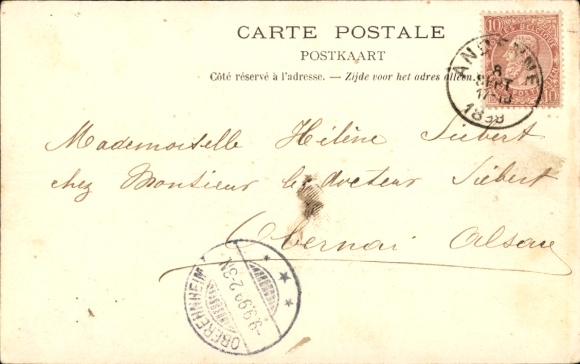 CARTE POSTALE
POSTKAART
Côté réservé à l'adresse. — Zijde voor het adres alleen.
10 10
ANDENNE
8
SEPT
17-18
1899
Mademoiselle Hélène Siebert
chez Monsieur le docteur Siebert
Obernai Alsace
OBEREHNHEIM
-9.9.99 2-3N